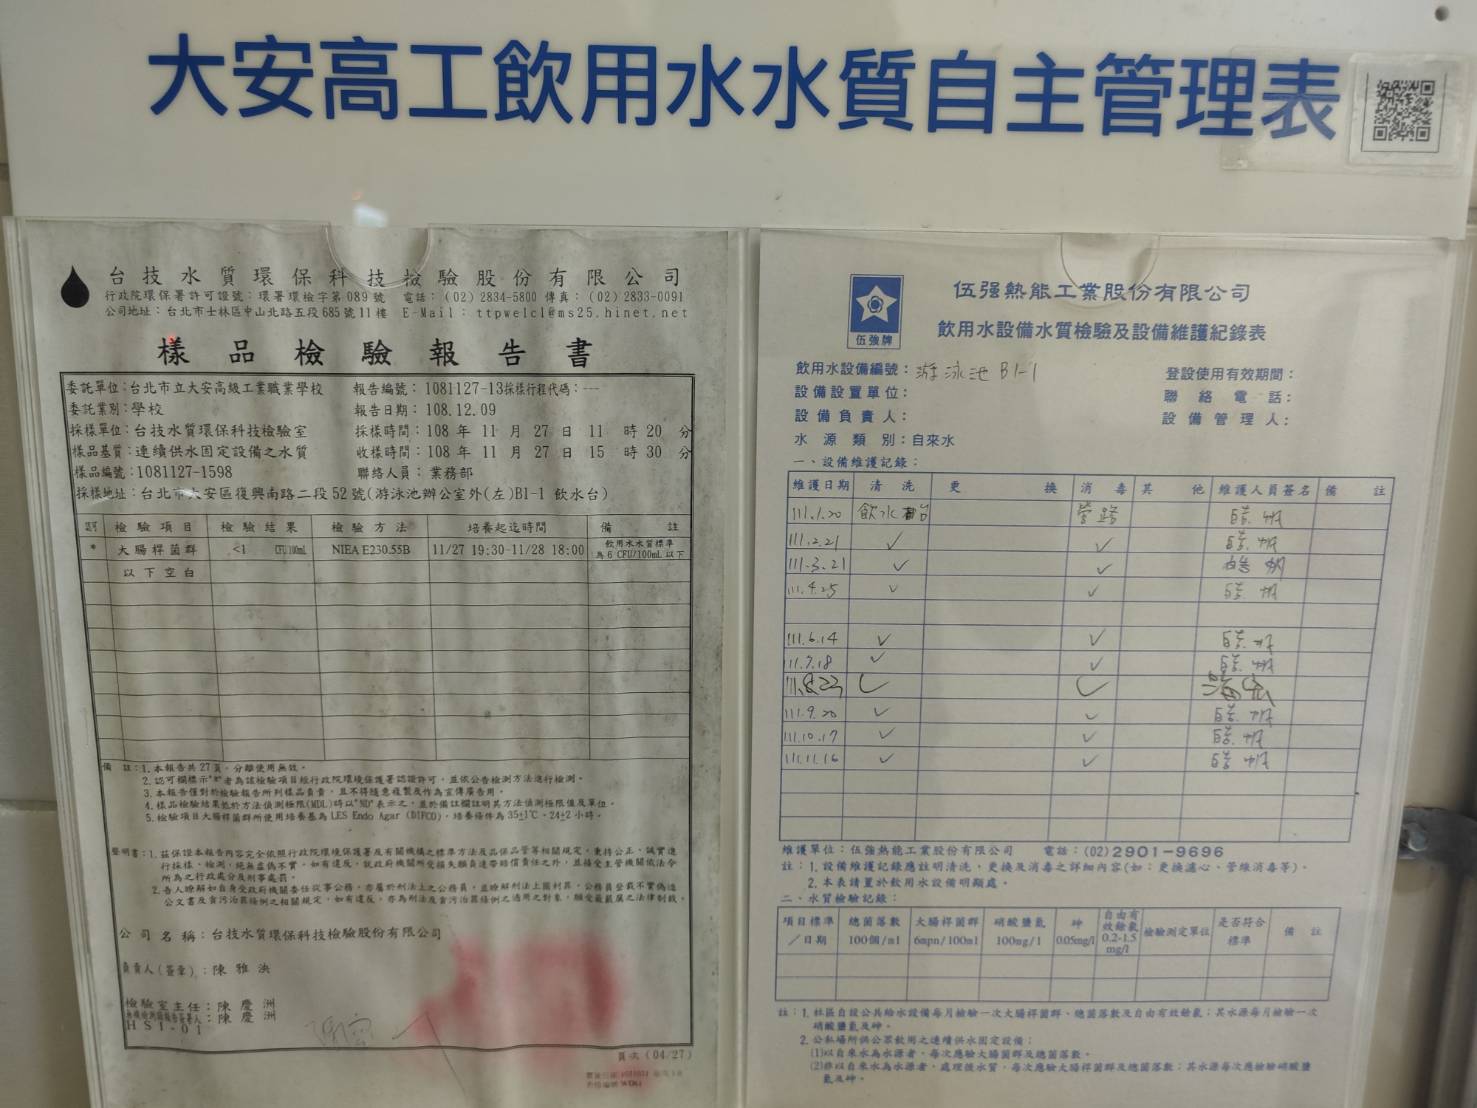 大安高工飲用水水質自主管理表
台技水質環保科技檢驗股份有限公司
行政院環保署許可證號：環署環檢字第089號 電話：(02) 2834-5800 傳真：(02) 2833-0091
公司地址：台北市士林區中山北路五段685號11樓 E-Mail: ttpwelcl@ms25.hinet.net
樣品檢驗報告書
委託單位：台北市立大安高級工業職業學校 報告編號：1081127-13採樣行程代碼：---
委託業別：學校 報告日期：108.12.09
採樣單位：台技水質環保科技檢驗室 採樣時間：108 年 11 月 27 日 11 時 20 分
樣品基質：連續供水固定設備之水質 收樣時間：108 年 11 月 27 日 15 時 30 分
樣品編號：1081127-1598 聯絡人員：業務部
採樣地址：台北市大安區復興南路二段52號(游泳池辦公室外(左)B1-1 飲水台)
檢驗項目 檢驗結果 檢驗方法 培養起迄時間 備註
* 大腸桿菌群 <1 CFU/100mL NIEA E230.55B 11/27 19:30-11/28 18:00 飲用水水質標準
為 6 CFU/100mL 以下
以下空白
備 註：1.本報告共27頁，分離使用無效。
2.認可欄標示"*"者為該檢驗項目經行政院環境保護署認證許可，並依公告檢測方法進行檢測。
3.本報告僅對於檢驗報告所列樣品負責，且不得隨意複製及作為宣傳廣告用。
4.樣品檢驗結果低於方法偵測極限(MDL)時以"ND"表示之，並於備註欄註明其方法偵測極限值及單位。
5.檢驗項目大腸桿菌群所使用培養基為 LES Endo Agar (DIFCO)，培養條件為 35±1℃，24±2 小時。
聲明書：1.茲保證本報告內容完全依照行政院環境保護署及有關機構之標準方法及品保品管等相關規定，秉持公正、誠實進
行採樣、檢測，絕無虛偽不實，如有違反，就政府機關所受損失願負連帶賠償責任之外，並接受主管機關依法令
所為之行政處分及刑事處罰。
2.吾人瞭解如自身受政府機關委任從事公務，亦屬於刑法上之公務員，並瞭解刑法上圖利罪、公務員登載不實偽造
公文書及貪污治罪條例之相關規定，如有違反，亦為刑法及貪污治罪條例之適用之對象，願受最嚴厲之法律制裁。
公司名稱：台技水質環保科技檢驗股份有限公司
負責人(簽章)：陳雅泱
檢驗室主任：陳慶洲
陳慶洲
HSI-01
頁次 (04/27)
伍強牌
伍强熱能工業股份有限公司
飲用水設備水質檢驗及設備維護紀錄表
飲用水設備編號：游泳池 B1-1 登設使用有效期間：
設備設置單位： 聯絡電話：
設備負責人： 設備管理人：
水源類別：自來水
一、設備維護記錄：
維護日期 清洗 更換 消毒 其他 維護人員簽名 備註
111.1.20 飲水台 管路
111.2.21 ✓ ✓
111.3.21 ✓ ✓
111.4.25 ✓ ✓
111.6.14 ✓ ✓
111.7.18 ✓ ✓
111.8.23 ✓ ✓
111.9.20 ✓ ✓
111.10.17 ✓ ✓
111.11.16 ✓ ✓
維護單位：伍強熱能工業股份有限公司 電話：(02)2901-9696
註：1.設備維護記錄應註明清洗、更換及消毒之詳細內容(如：更換濾心、管線消毒等)。
2.本表請置於飲用水設備明顯處。
二、水質檢驗記錄：
項目標準／日期 總菌落數 100個/ml 大腸桿菌群 6mpn/100ml 硝酸鹽氮 100mg/l 砷 0.05mg/l 自由有效餘氯 0.2-1.5 mg/l 檢驗測定單位 是否符合標準 備註
註：1.社區自設公共給水設備每月檢驗一次大腸桿菌群、總菌落數及自由有效餘氯；其水源每月檢驗一次
硝酸鹽氮及砷。
2.公私場所供公眾飲用之連續供水固定設備：
(1)以自來水為水源者，每次應驗大腸桿菌群及總菌落數。
(2)非以自來水為水源者，處理後水質，每次應驗大腸桿菌群及總菌落數；其水源每次應檢驗硝酸鹽
氮及砷。